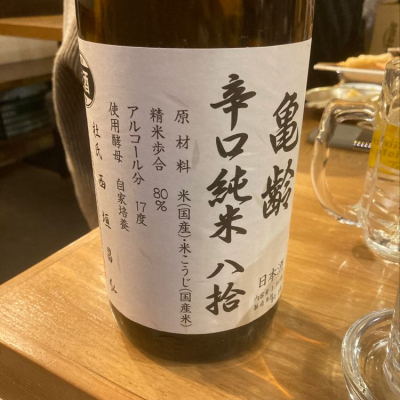 亀齢
辛口純米 八拾
原材料 米(国産)・米こうじ(国産米)
精米歩合 80%
アルコール分 17度
使用酵母 自家培養
杜氏 西垣昌弘
日本酒